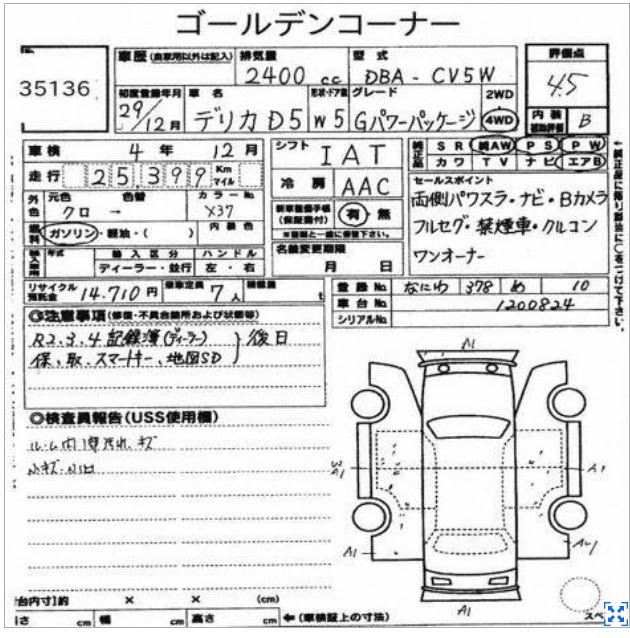 ゴールデンコーナー
35136
車歴 (自家用以外は記入) 排気量 2400 cc 型式 DBA - CV5W 評価点 4.5
初度登録年月 29/12月 車名 デリカD5 形状・ドア数 W5 グレード Gパワーパッケージ 2WD 4WD 内装 B
車検 4年 12月 シフト IAT 純正品 SR 純AW PS PW
走行 25,399 Km マイル 冷房 AAC カワ TV ナビ エアB
外色 元色 クロ 色替 カラーNo. X37
新車整備手帳(保証書付) 有・無
セールスポイント
両側パワスラ・ナビ・Bカメラ
フルセグ・禁煙車・クルコン
ワンオーナー
燃料 ガソリン・軽油・( ) 内装色
年式 輸入区分 ハンドル 名義変更期限
ディーラー・並行 左・右 月 日
リサイクル預託金 14.710円 乗車定員 7人 積載量 t
登録No. なにわ 378 め 10
車台No. 1200824
シリアルNo.
◎注意事項(修復・不具合箇所および状態等)
R2.3.4 記録簿(ディーラー) 後日
保、取、スマートキー、地図SD
◎検査員報告(USS使用欄)
ルーム内1部汚れ、キズ
小キズ・小凹
A1
A1
A1
A1
A1
A1
台内寸]約 × × (cm)
長さ cm 幅 cm 高さ cm ←(車検証上の寸法)
スペ